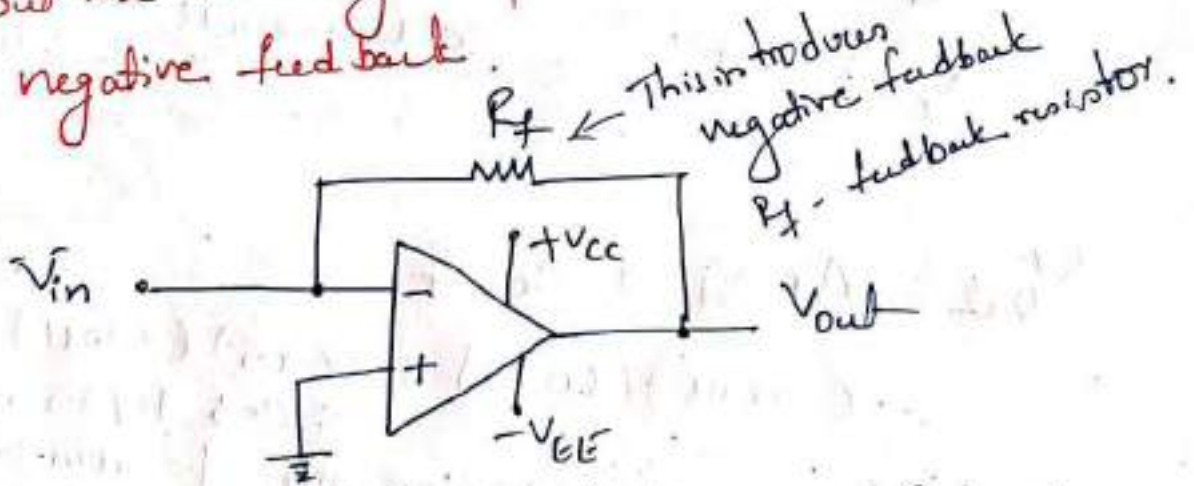 negative feedback.
This introduces
negative feedback
Rf - feedback resistor.
Rf
+VCC
Vin
-
+
Vout
-VEE